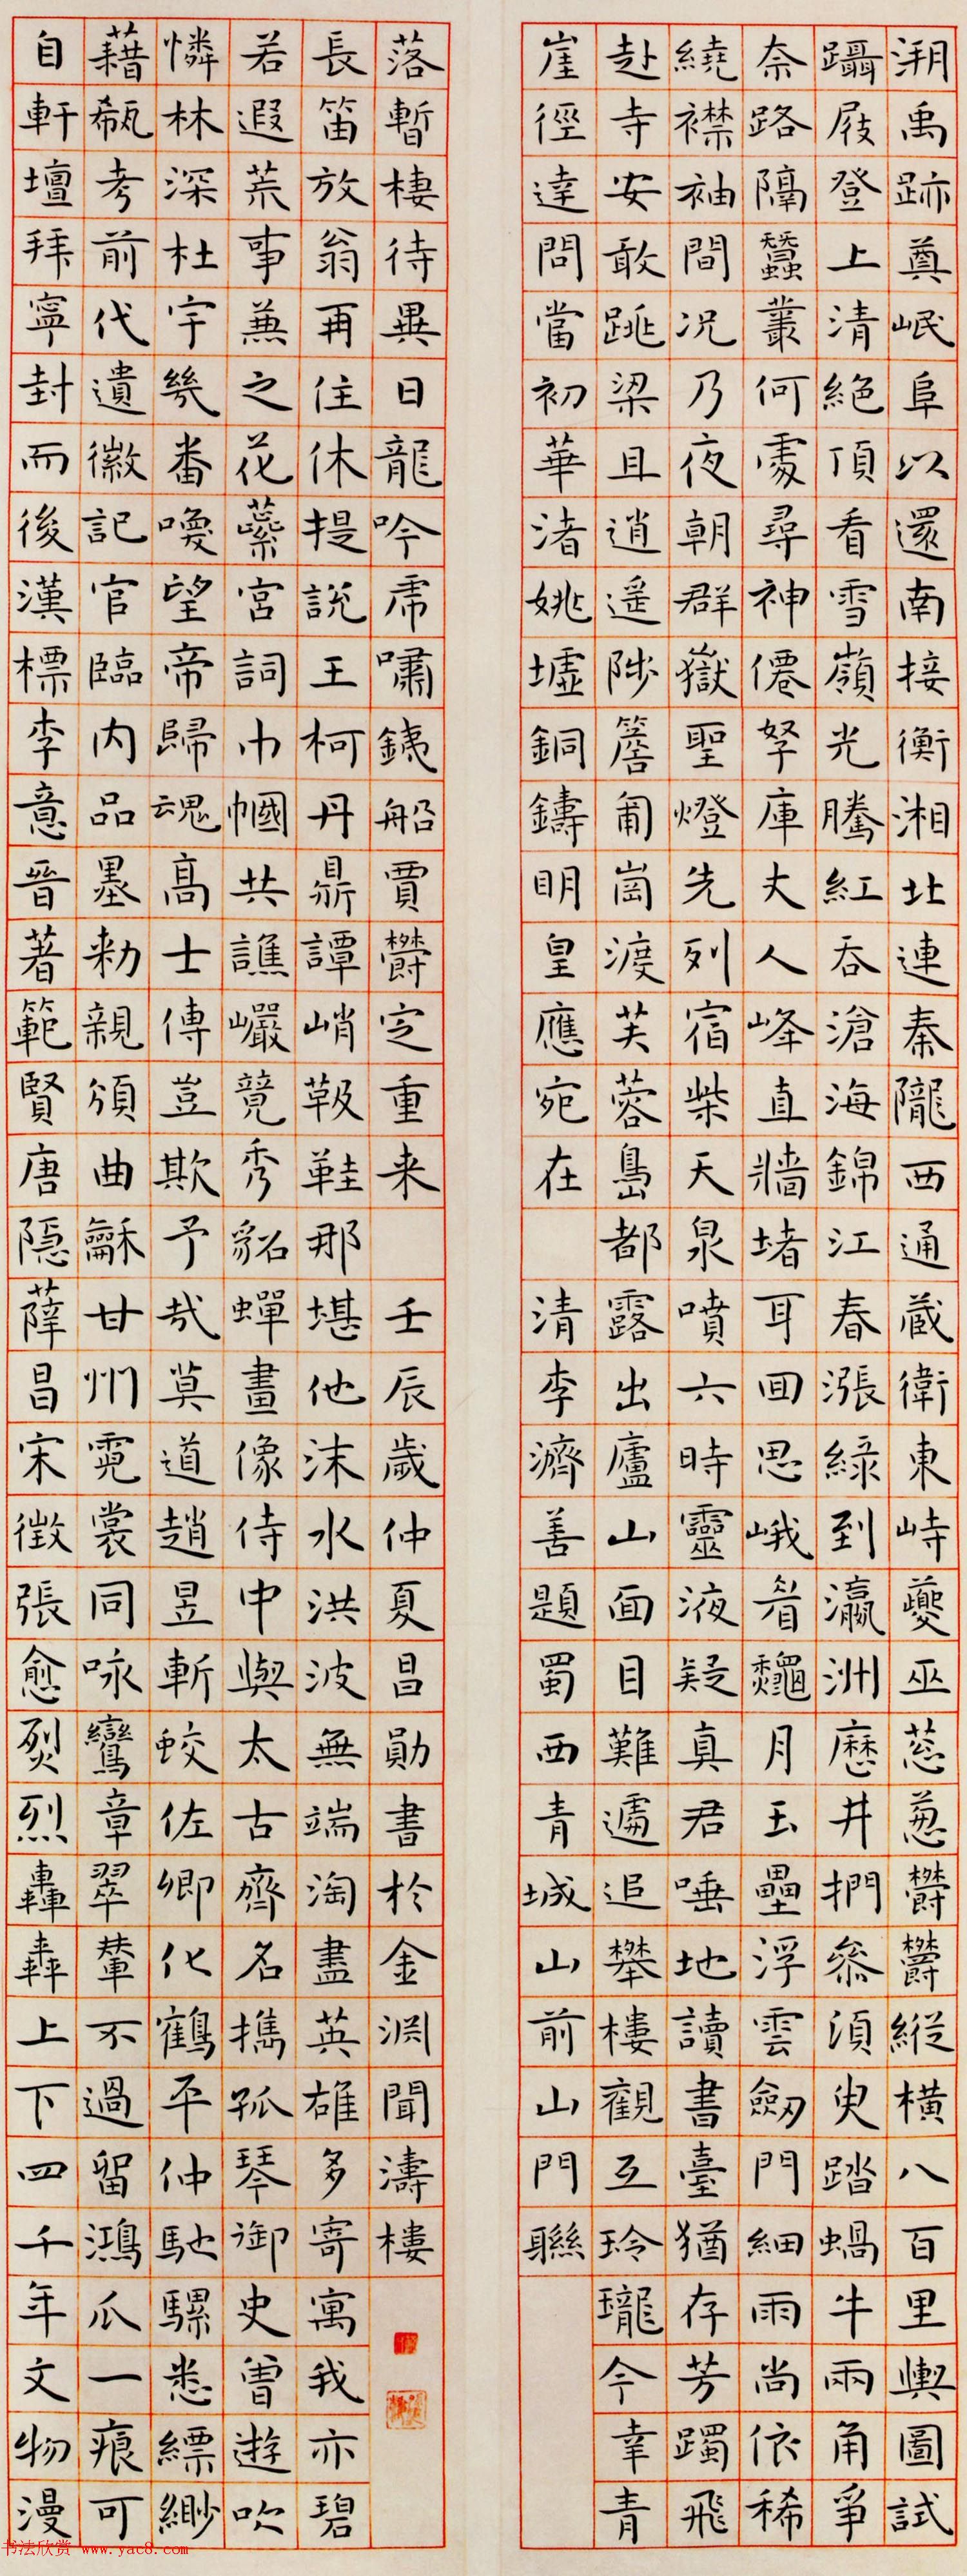 溯禹跡奠岷阜以還南接衡湘北連秦隴西通藏衛東峙夔巫葱葱鬱鬱縱橫八百里輿圖試
躡屐登上清絕頂看雪嶺光騰紅吞滄海錦江春漲綠到瀛洲歷井捫參須臾踏蝸牛兩角爭
奈路隔蠶叢何處尋神僊孥庫丈人峰直牆堵耳回思峨眉龝月玉壘浮雲劒門細雨尚依稀
繞襟袖間況乃夜朝群嶽聖燈先列宿柴天泉噴六時靈液疑真君唾地讀書臺猶存芳躅飛
赴寺安敢跳梁且逍遥陟簷匍崗渡芙蓉島都露出廬山面目難遽追攀樓觀互玲瓏今幸青
崖徑達問當初華渚姚墟銅鑄明皇應宛在 清李濟善題蜀西青城山前山門聯
自軒壇拜寧封而後漢標李意晉著範賢唐隱薛昌宋徵張愈烈烈轟轟上下四千年文物漫
藉瓻考前代遺徽記官臨内品墨勅親頒曲龢甘州霓裳同咏鸞章翠輦不過留鴻爪一痕可
憐林深杜宇幾番喚望帝歸魂高士傳豈欺予哉莫道趙昱斬蛟佐卿化鶴平仲馳騾悉縹緲
若遐荒事兼之花蘂宮詞巾幗共譙巖競秀貂蟬畫像侍中與太古齊名攜孤琴御史曾遊吹
長笛放翁再住休提説王柯丹鼎譚峭靸鞋那堪他沫水洪波無端淘盡英雄多寄寓我亦碧
落暫棲待異日龍吟虎嘯鐵船賈鬱定重来 壬辰歲仲夏昌勛書於金淵聞濤樓
书法欣赏 www.yac8.com